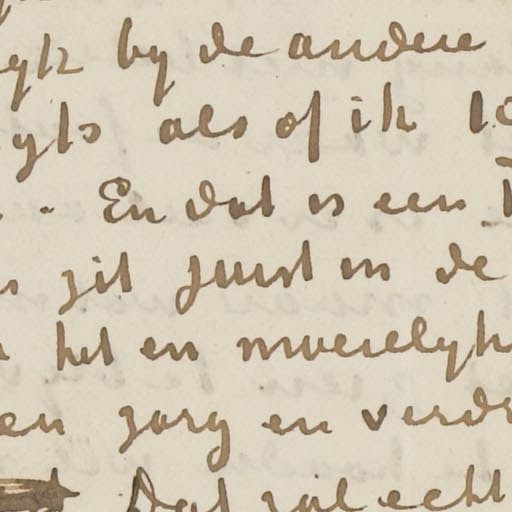 by de andere
als of ik
En dat is een
zit juist in de
het en moeielyk
en zorg en verdr
Dat zal echt